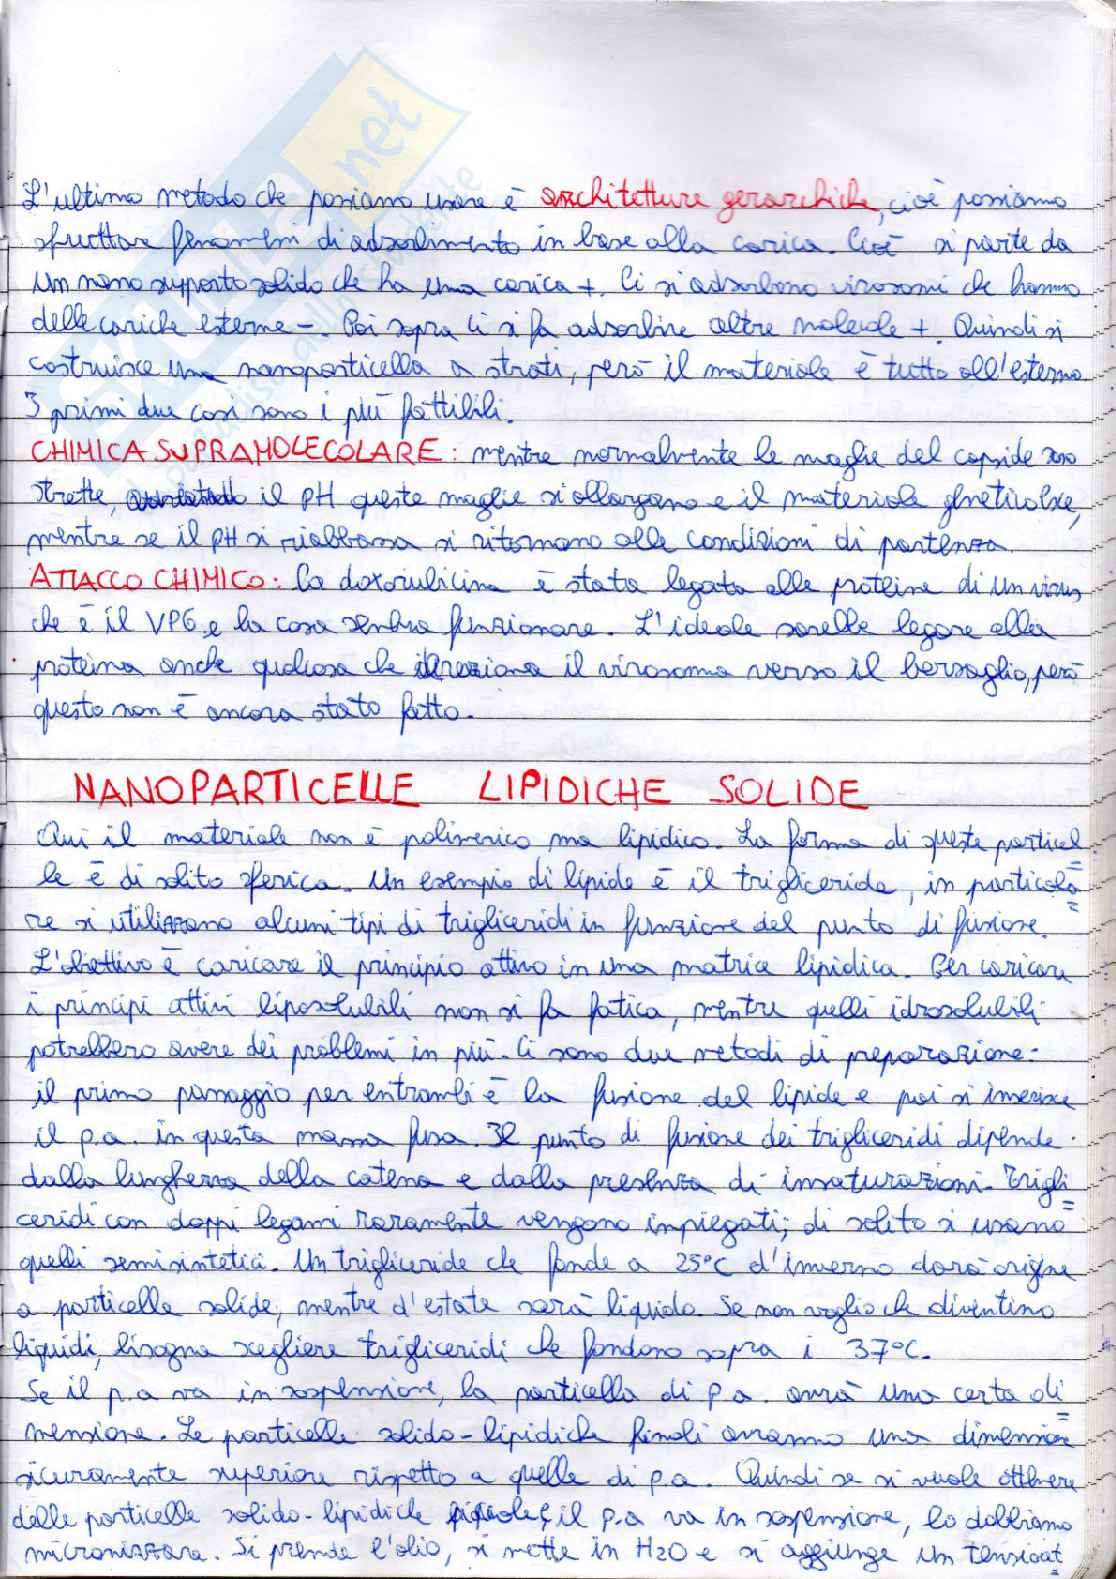 L'ultimo metodo che possiamo usare è architetture gerarchiche, cioè possiamo
sfruttare fenomeni di adsorbimento in base alla carica. Cioè si parte da
un nano supporto solido che ha una carica +. Ci si adsorbono virosomi che hanno
delle cariche esterne -. Poi sopra ci si fa adsorbire altre molecole +. Quindi si
costruisce una nanoparticella a strati, però il materiale è tutto all'esterno.
I primi due casi sono i più fattibili.
CHIMICA SUPRAMOLECOLARE: mentre normalmente le maglie del capside sono
strette, il pH queste maglie si allargano e il materiale genetico esce,
mentre se il pH si riabbassa si ritornano alle condizioni di partenza.
ATTACCO CHIMICO: la doxorubicina è stata legata alle proteine di un virus,
che è il VP6, e la cosa sembra funzionare. L'ideale sarebbe legare alla
proteina anche qualcosa che direziona il virosoma verso il bersaglio, però
questo non è ancora stato fatto.
NANOPARTICELLE LIPIDICHE SOLIDE
Qui il materiale non è polimerico ma lipidico. La forma di queste particel
le è di solito sferica. Un esempio di lipide è il trigliceride, in particola
re si utilizzano alcuni tipi di trigliceridi in funzione del punto di fusione.
L'obiettivo è caricare il principio attivo in una matrice lipidica. Per caricare
i principi attivi liposolubili non si fa fatica, mentre quelli idrosolubili
potrebbero avere dei problemi in più. Ci sono due metodi di preparazione:
il primo passaggio per entrambi è la fusione del lipide e poi si inserisce
il p.a. in questa massa fusa. Il punto di fusione dei trigliceridi dipende
dalla lunghezza della catena e dalla presenza di insaturazioni. Trigli
ceridi con doppi legami raramente vengono impiegati; di solito si usano
quelli semisintetici. Un trigliceride che fonde a 25°C d'inverno darà origine
a particelle solide, mentre d'estate sarà liquido. Se non voglio che diventino
liquidi, bisogna scegliere trigliceridi che fondono sopra i 37°C.
Se il p.a va in sospensione, la particella di p.a. avrà una certa di
mensione. Le particelle solido-lipidiche finali avranno una dimensione
sicuramente superiore rispetto a quelle di p.a. Quindi se si vuole ottenere
delle particelle solido-lipidiche piccole, e il p.a va in sospensione, lo dobbiamo
micronizzare. Si prende l'olio, si mette in H2O e si aggiunge un tensioat